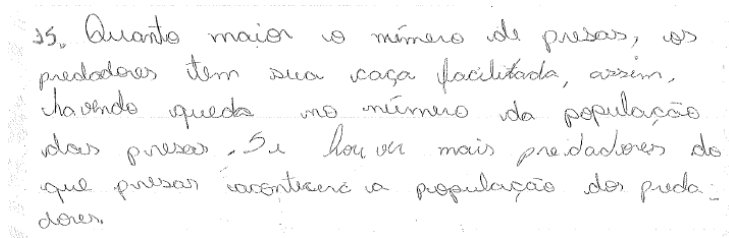 15. Quanto maior o número de presas, os
predadores tem sua caça facilitada, assim,
havendo queda no número da população
das presas. Se houver mais predadores do
que presas acontecerá a população dos preda-
dores.